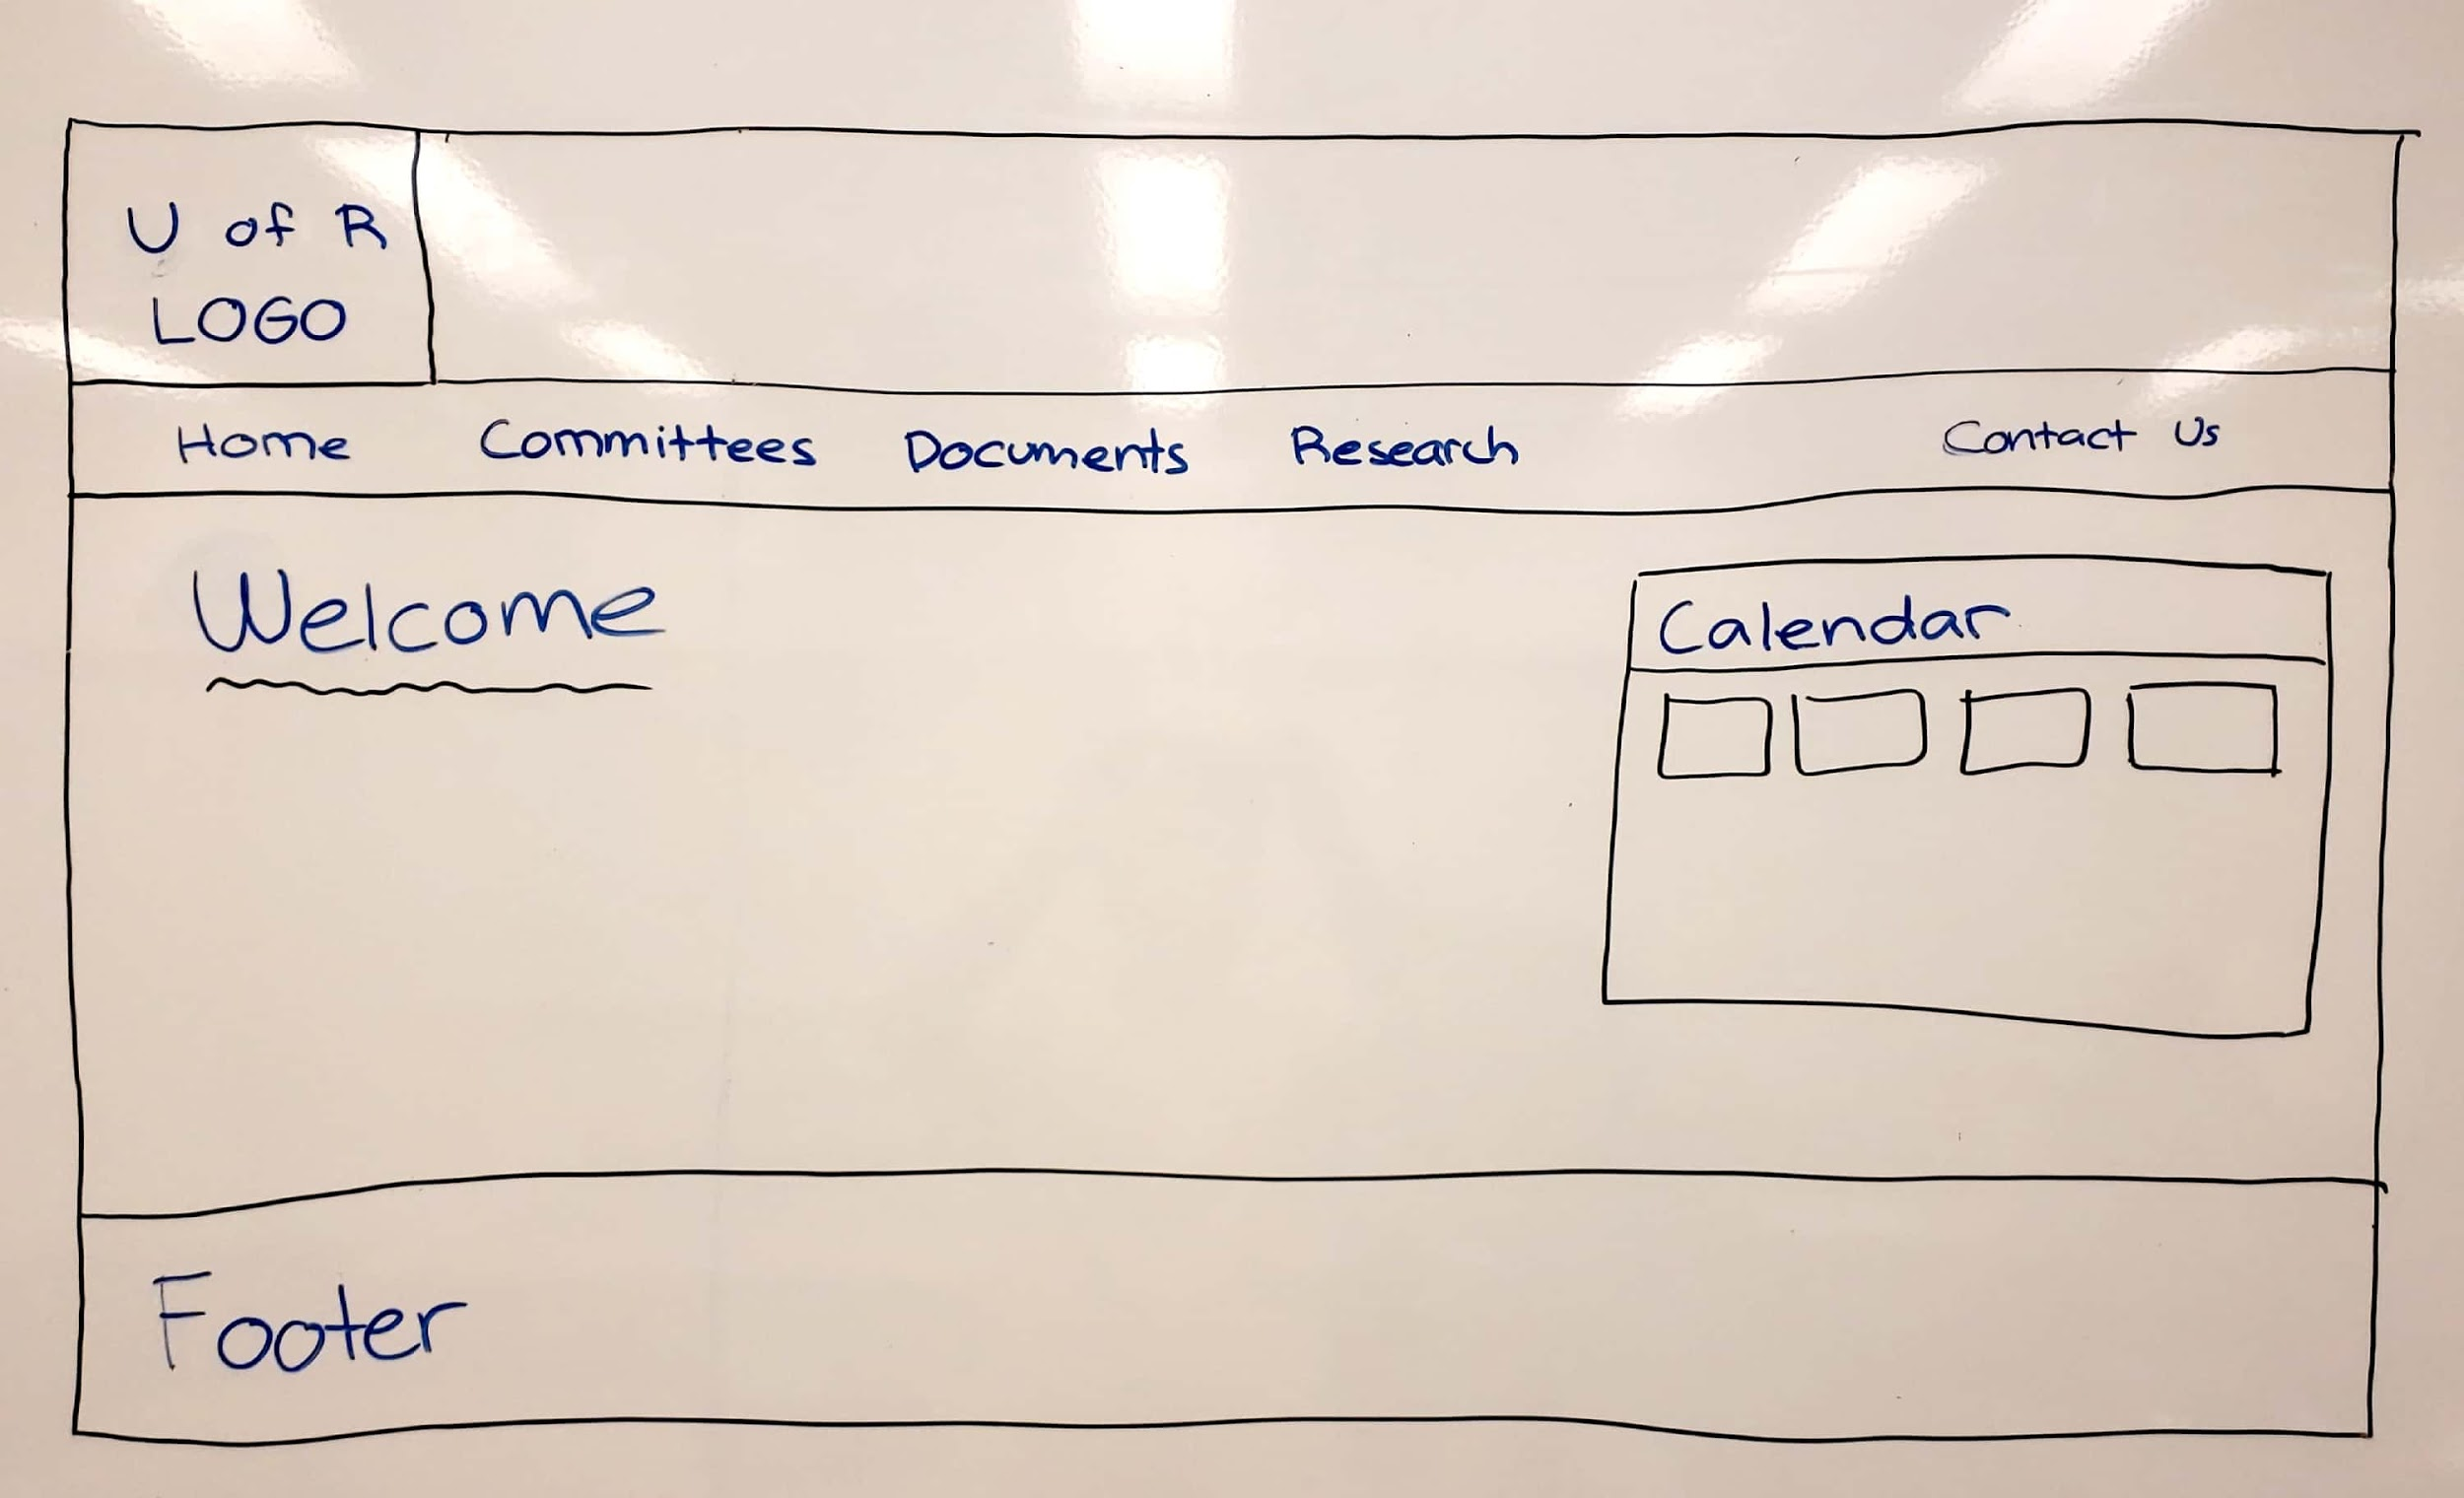 U of R
LOGO
Home Committees Documents Research Contact Us
Welcome
Calendar
Footer